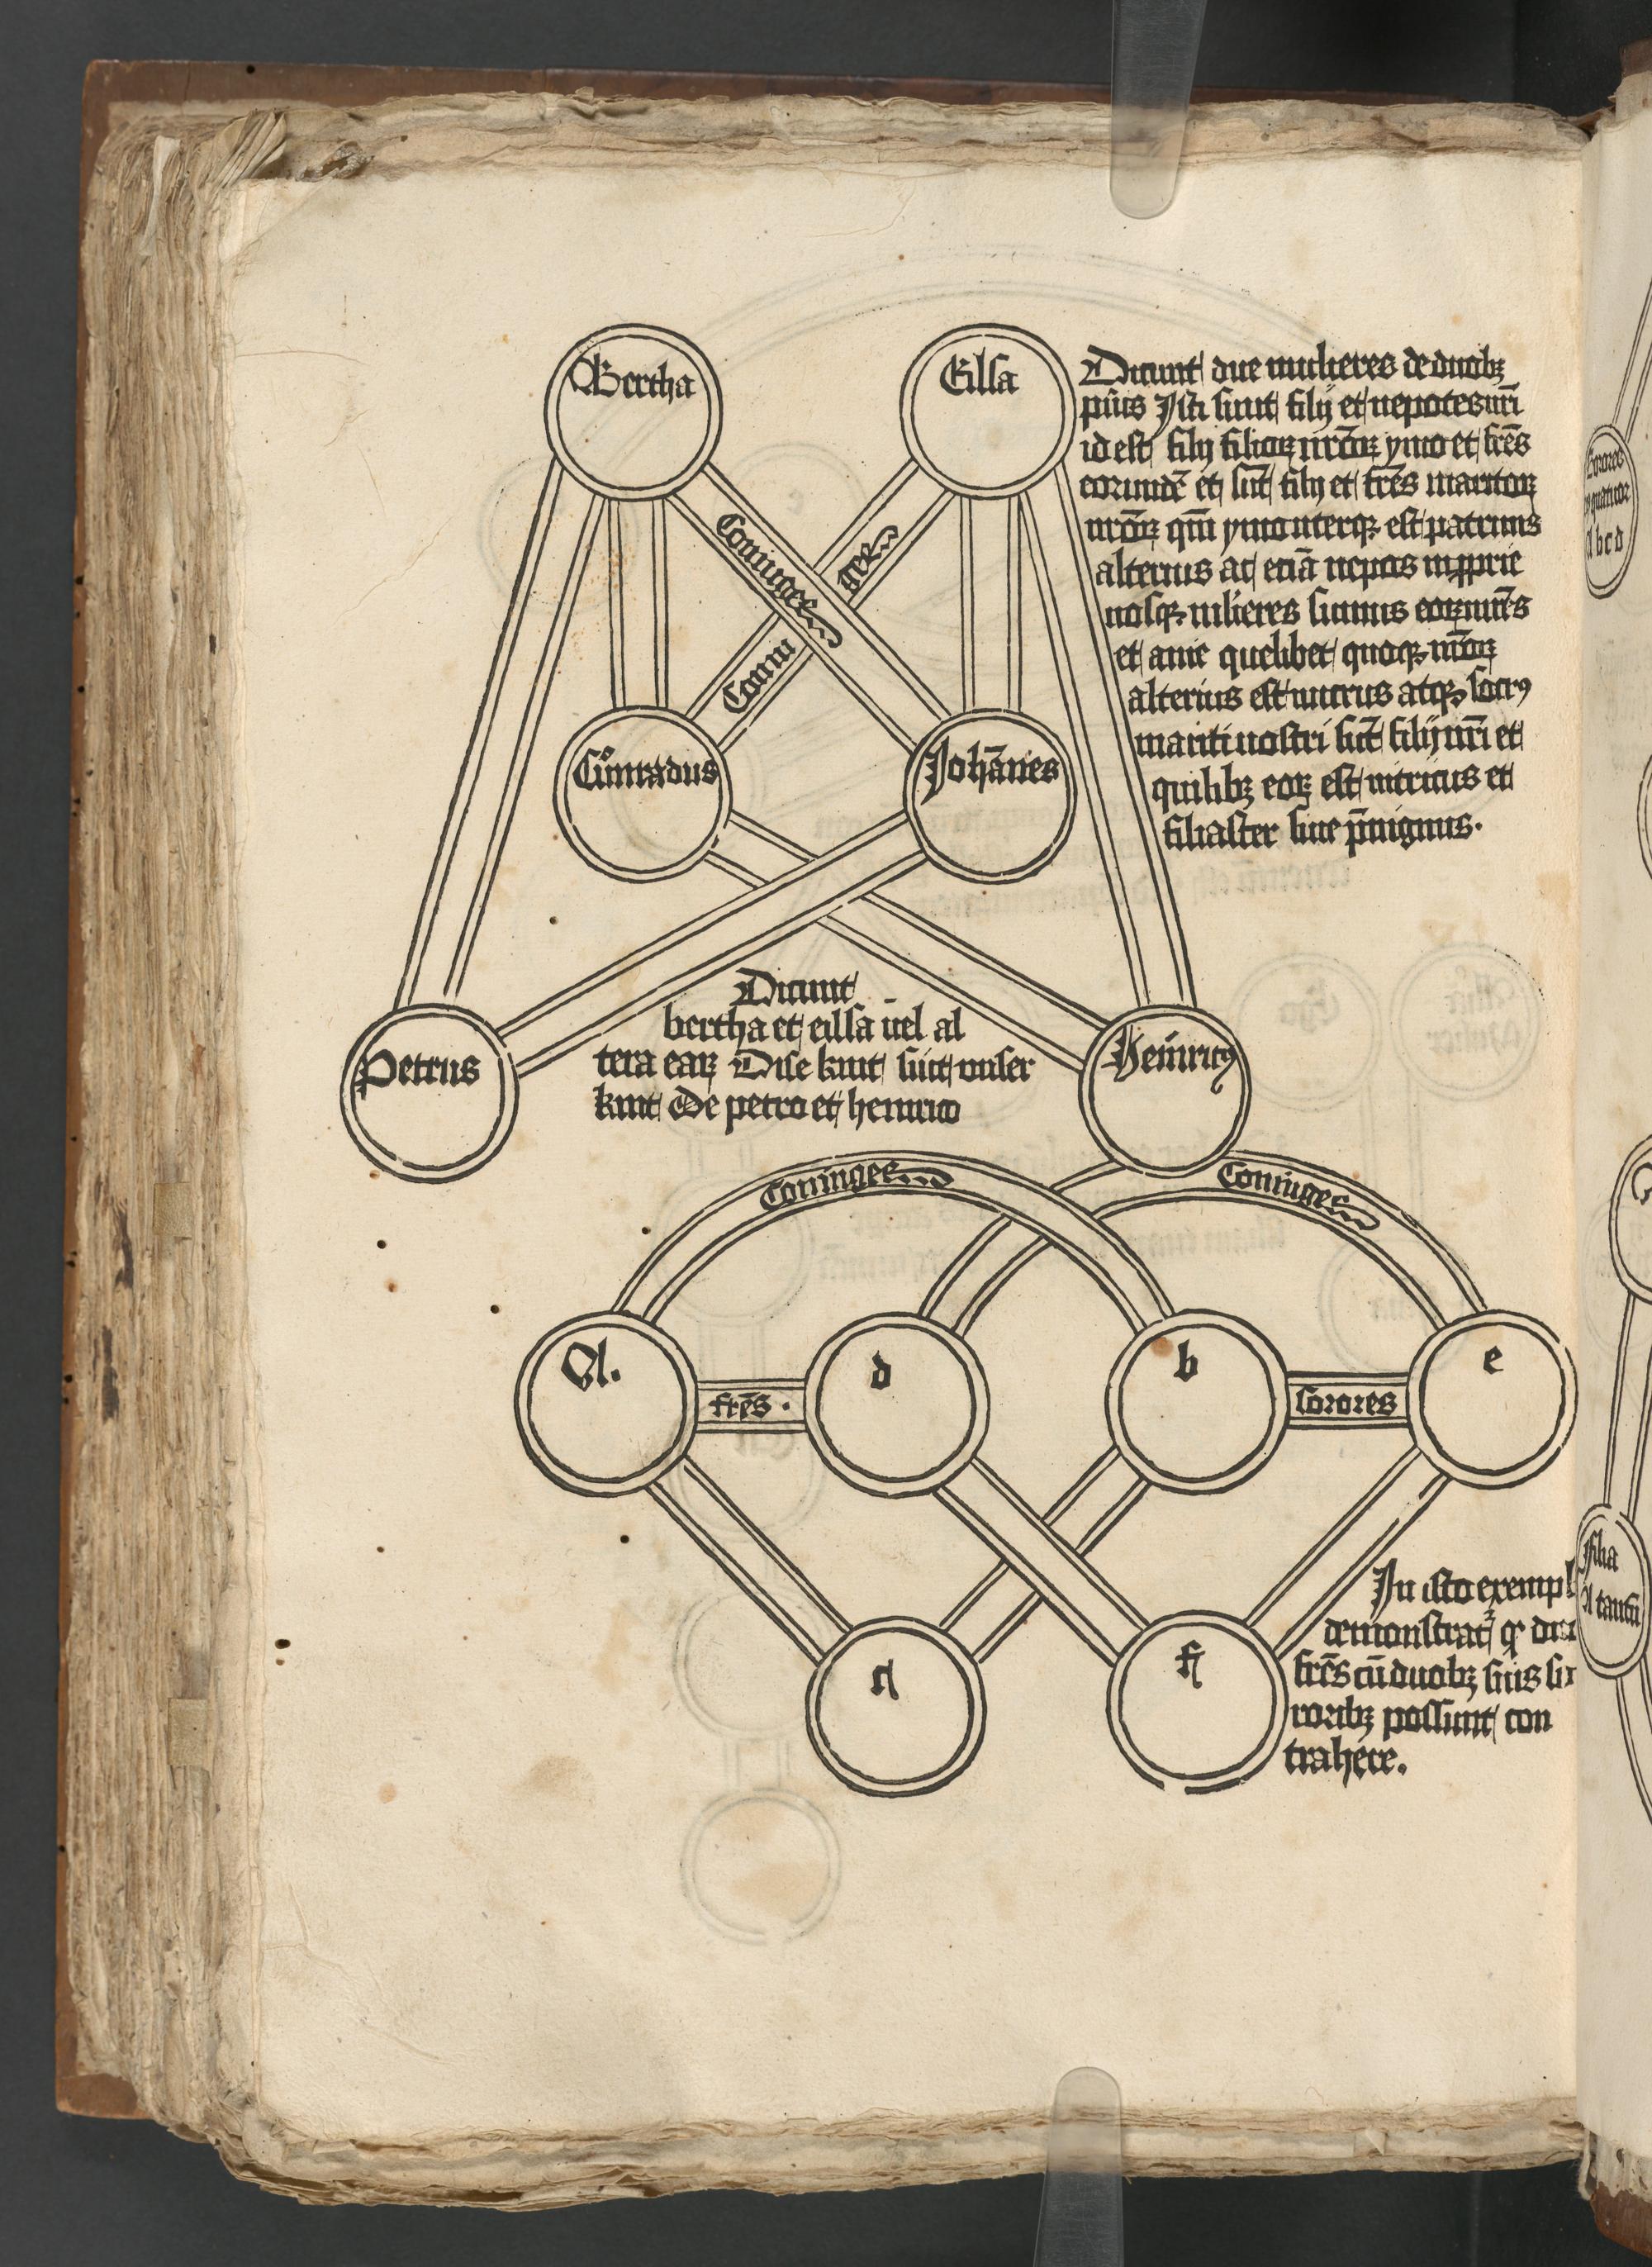 Bertha
Eilsa
Dicunt due mulieres de duobꝫ
pūis Isti sunt filij et nepotes nr̄i
id est filij filioꝝ nr̄oꝝ ymo et fr̄es
eorundē et sūt filij et fr̄es maritoꝝ
nr̄oꝝ qm̄ ymo uterqꝫ est patruus
alterius ac etiā nepos inpprie
nosqꝫ mlieres sumus eoꝝ mr̄es
et auie quelibet quoqꝫ nr̄oꝝ
alterius est nurus atqꝫ socrꝰ
mariti nostri sūt filij nr̄i et
quilibꝫ eoꝝ est uitricus et
filiaster siue p̄uignus.
Coniuges
Coniu
ges
Cůnradus
Johānes
Dicunt
bertha et eilsa uel al
tera eaꝝ Dise kint sint unser
kint De petro et henrico
Petrus
Heinricꝰ
Coniuges
Coniuges
A.
d
b
e
fr̄es.
sorores
f
In isto exempl
demonstrat qꝫ du
fr̄es cū duobꝫ suis
roribꝫ possunt con
trahere.
Sorores
quatuor
a b c d
filia
A tantū